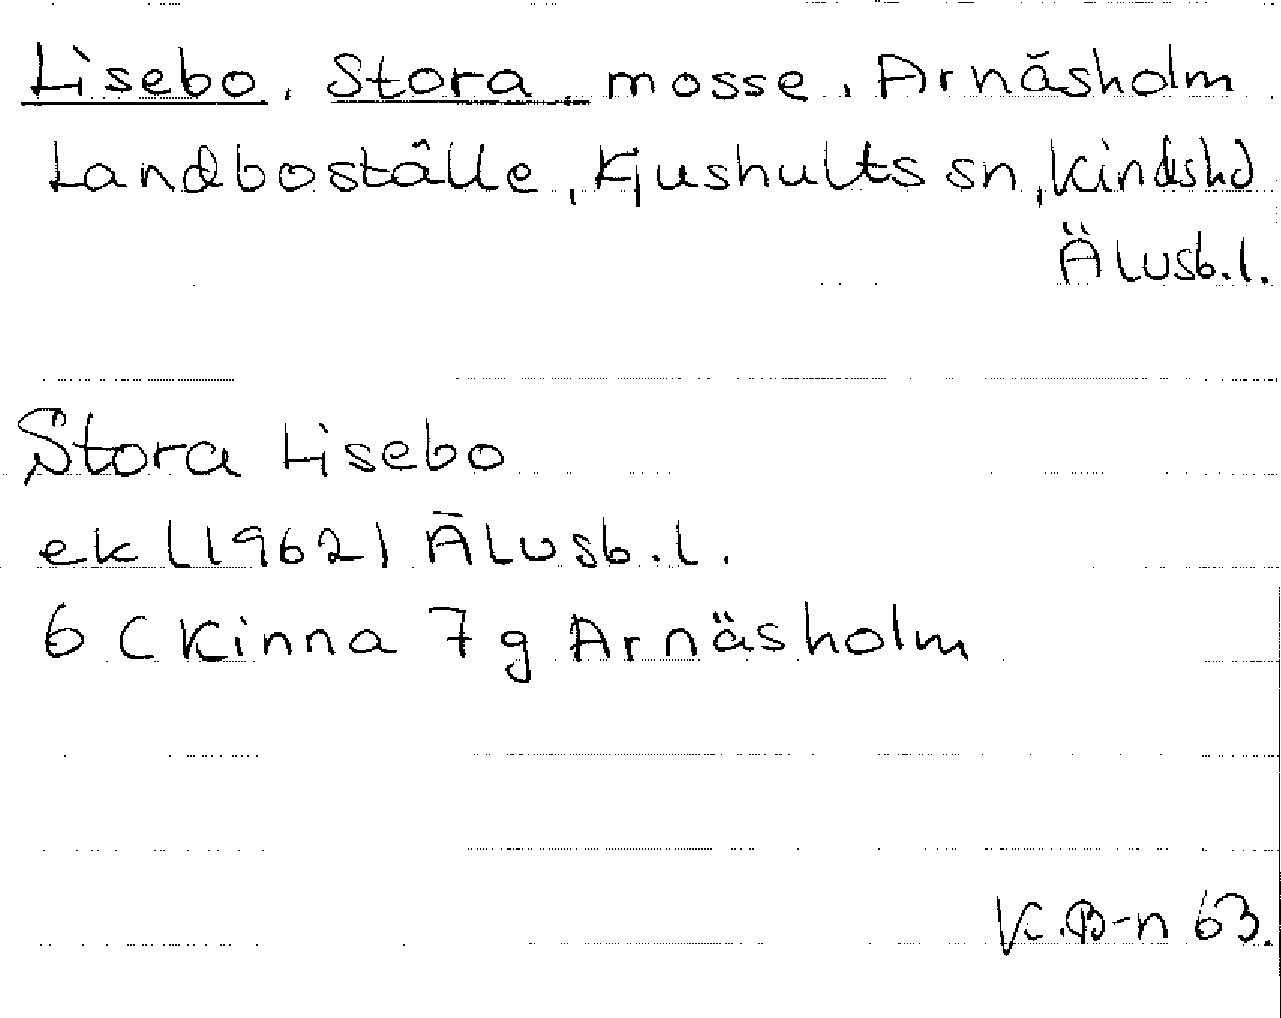 Lisebo, Stora, mosse, Arnäsholm
Landboställe, Ljushults sn, Kinds hd
Älvsb.l.
Stora Lisebo
ek (1962) Älvsb.l.
6 C Kinna 7 g Arnäsholm
K.B-n 63.